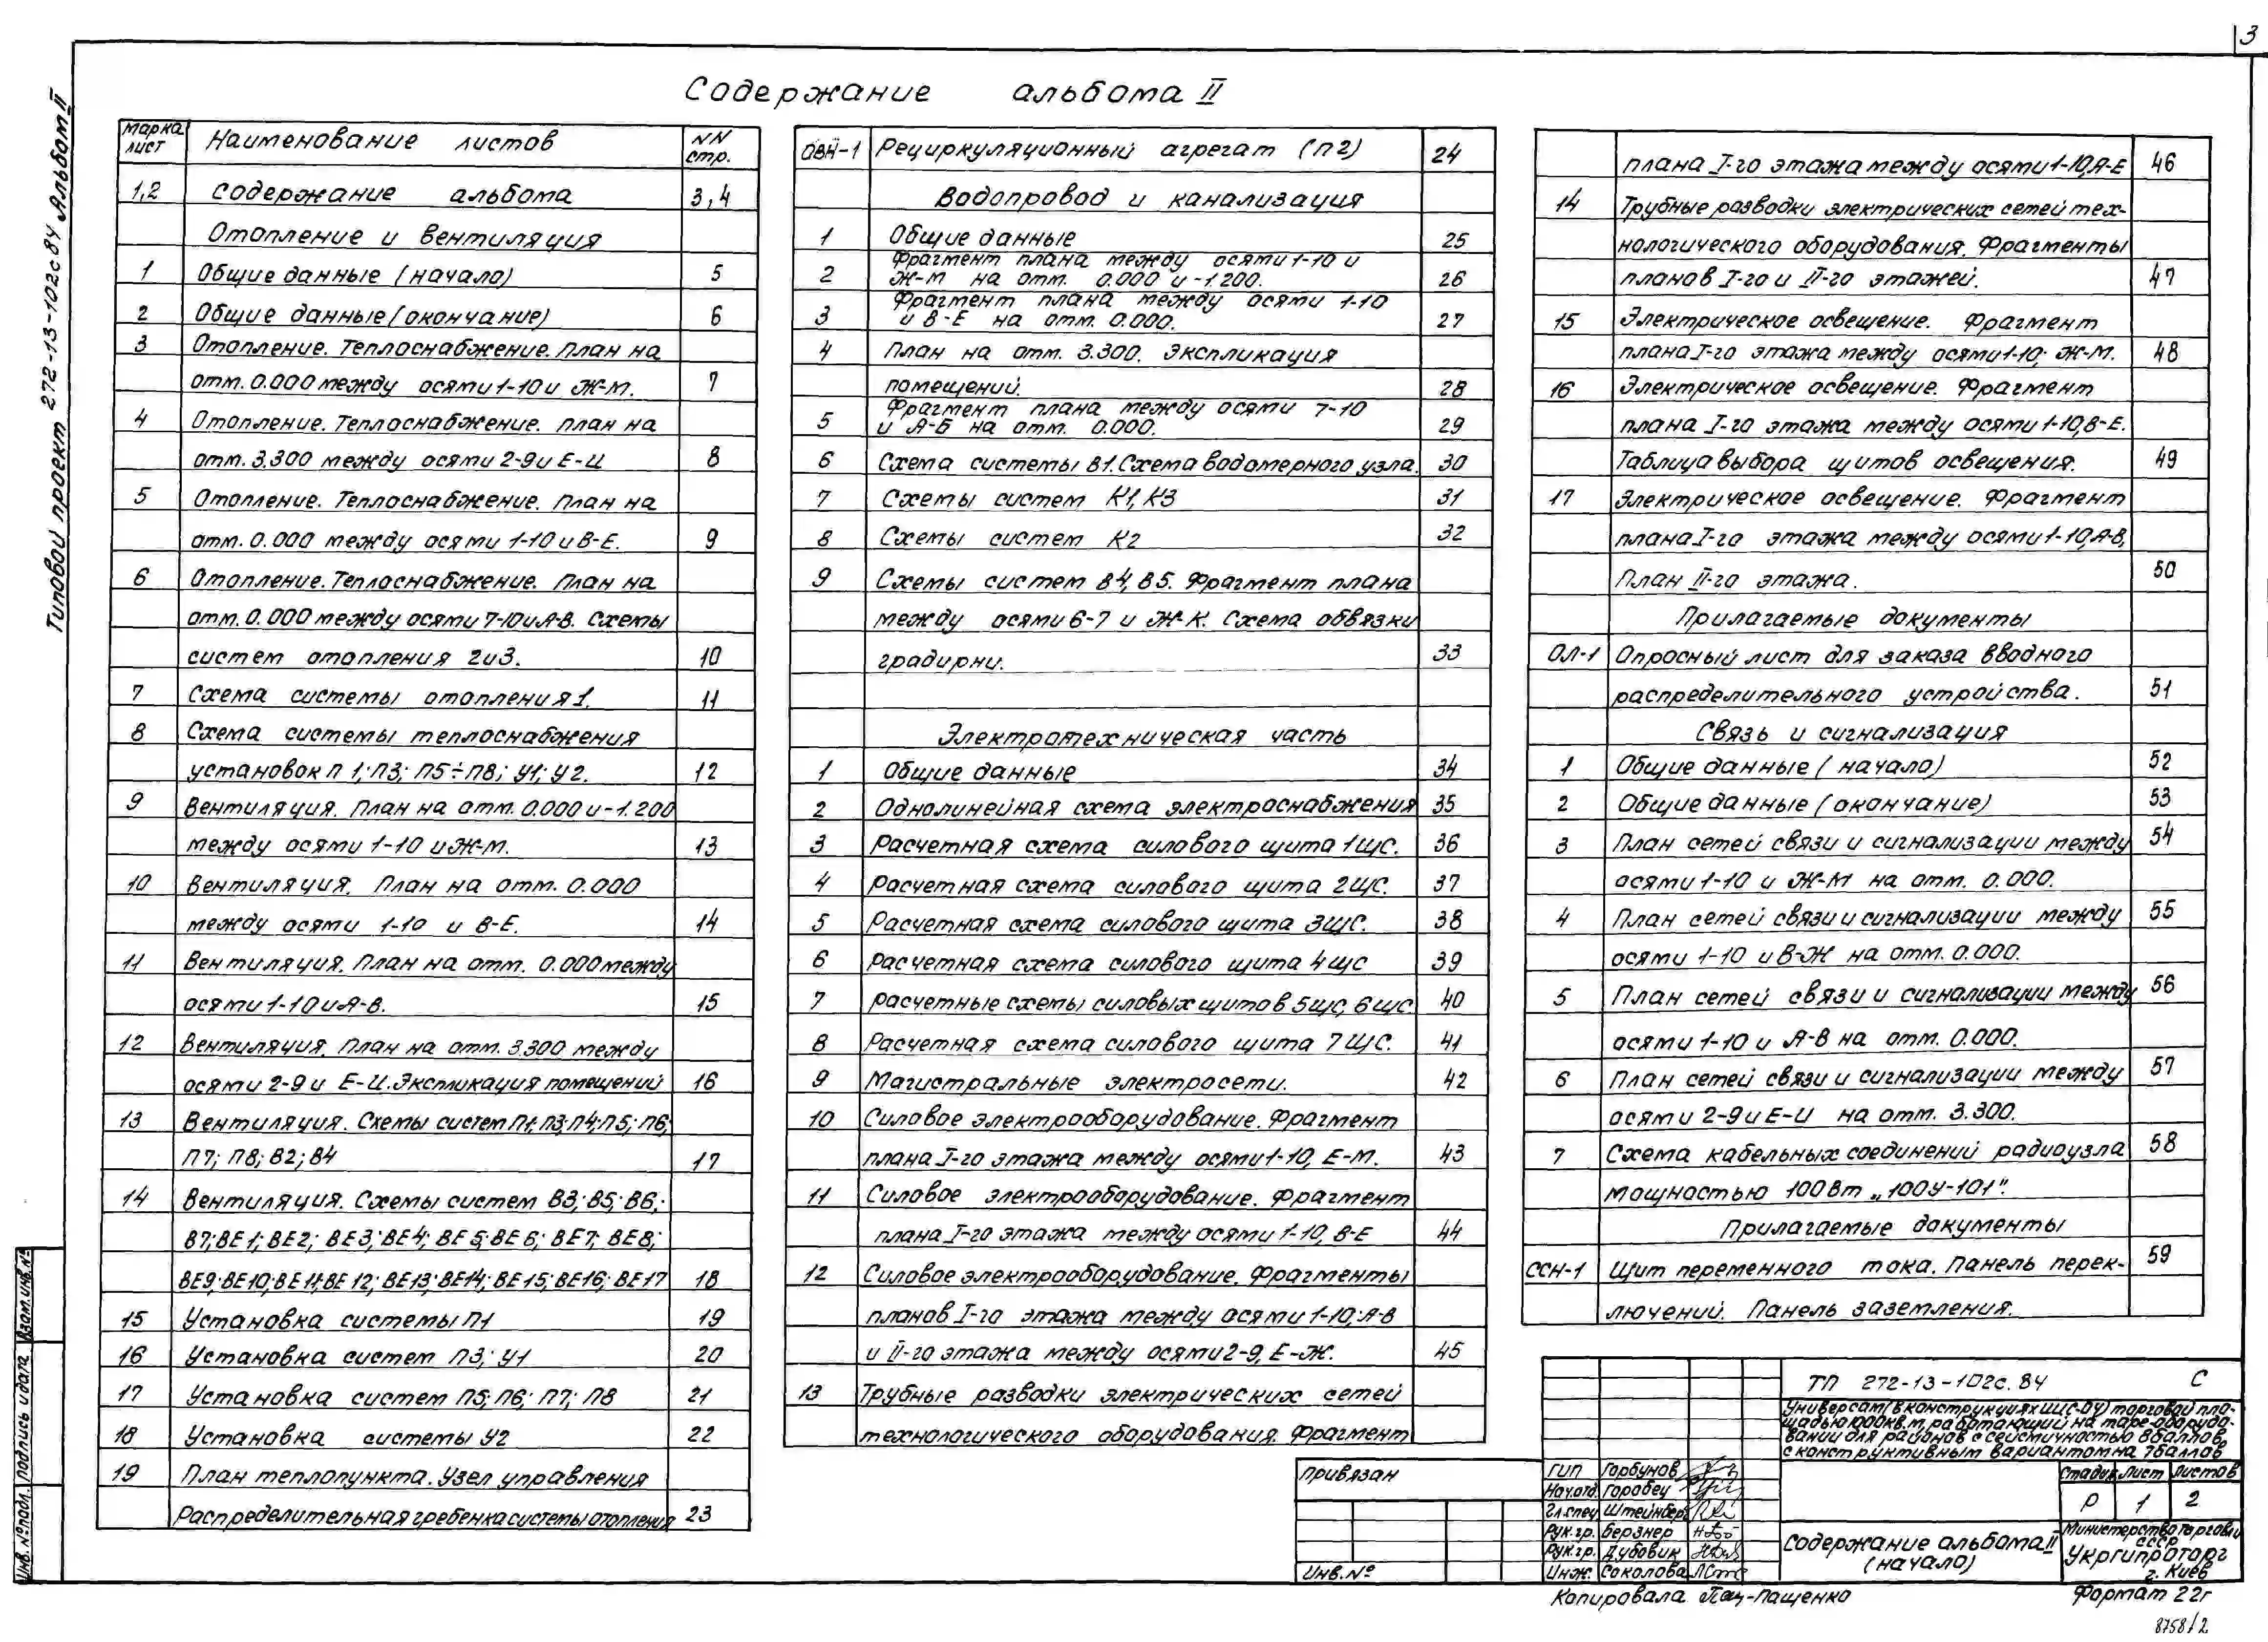 3
Содержание альбома II
Типовой проект 272-13-102с84 Альбом II
Марка лист
Наименование листов
NN стр.
1,2 Содержание альбома 3,4
Отопление и вентиляция
1 Общие данные (начало) 5
2 Общие данные (окончание) 6
3 Отопление. Теплоснабжение. План на
отм. 0.000 между осями 1-10 и Ж-М. 7
4 Отопление. Теплоснабжение. План на
отм. 3.300 между осями 2-9 и Е-И 8
5 Отопление. Теплоснабжение. План на
отм. 0.000 между осями 1-10 и В-Е. 9
6 Отопление. Теплоснабжение. План на
отм. 0.000 между осями 7-10 и А-В. Схемы
систем отопления 2 и 3. 10
7 Схема системы отопления 1. 11
8 Схема системы теплоснабжения
установок П1; П3; П5÷П8; У1; У2. 12
9 Вентиляция. План на отм. 0.000 и -1.200
между осями 1-10 и Ж-М. 13
10 Вентиляция. План на отм. 0.000
между осями 1-10 и В-Е. 14
11 Вентиляция. План на отм. 0.000 между
осями 1-10 и А-В. 15
12 Вентиляция. План на отм. 3.300 между
осями 2-9 и Е-И. Экспликация помещений 16
13 Вентиляция. Схемы систем П1; П3; П4; П5; П6;
П7; П8; В2; В4 17
14 Вентиляция. Схемы систем В3; В5; В6;
В7; ВЕ1; ВЕ2; ВЕ3; ВЕ4; ВЕ5; ВЕ6; ВЕ7; ВЕ8;
ВЕ9; ВЕ10; ВЕ11; ВЕ12; ВЕ13; ВЕ14; ВЕ15; ВЕ16; ВЕ17 18
15 Установка системы П1 19
16 Установка систем П3; У1 20
17 Установка систем П5; П6; П7; П8 21
18 Установка системы У2 22
19 План теплопункта. Узел управления
Распределительная гребенка системы отопления 23
ОВН-1 Рециркуляционный агрегат (П2) 24
Водопровод и канализация
1 Общие данные 25
2 Фрагмент плана между осями 1-10 и
Ж-М на отм. 0.000 и -1.200. 26
3 Фрагмент плана между осями 1-10
и В-Е на отм. 0.000. 27
4 План на отм. 3.300. Экспликация
помещений. 28
5 Фрагмент плана между осями 7-10
и А-Б на отм. 0.000. 29
6 Схема системы В1. Схема водомерного узла. 30
7 Схемы систем К1, К3 31
8 Схемы систем К2 32
9 Схемы систем В4, В5. Фрагмент плана
между осями 6-7 и Ж-К. Схема обвязки
градирни. 33
Электротехническая часть
1 Общие данные 34
2 Однолинейная схема электроснабжения 35
3 Расчетная схема силового щита 1ЩС. 36
4 Расчетная схема силового щита 2ЩС. 37
5 Расчетная схема силового щита 3ЩС. 38
6 Расчетная схема силового щита 4ЩС 39
7 Расчетные схемы силовых щитов 5ЩС, 6ЩС. 40
8 Расчетная схема силового щита 7ЩС. 41
9 Магистральные электросети. 42
10 Силовое электрооборудование. Фрагмент
плана I-го этажа между осями 1-10, Е-М. 43
11 Силовое электрооборудование. Фрагмент
плана I-го этажа между осями 1-10, В-Е 44
12 Силовое электрооборудование. Фрагменты
планов I-го этажа между осями 1-10; А-В
и II-го этажа между осями 2-9, Е-Ж. 45
13 Трубные разводки электрических сетей
технологического оборудования. Фрагмент
плана I-го этажа между осями 1-10, А-Е 46
14 Трубные разводки электрических сетей тех-
нологического оборудования. Фрагменты
планов I-го и II-го этажей. 47
15 Электрическое освещение. Фрагмент
плана I-го этажа между осями 1-10; Ж-М. 48
16 Электрическое освещение. Фрагмент
плана I-го этажа между осями 1-10, В-Е.
Таблица выбора щитов освещения. 49
17 Электрическое освещение. Фрагмент
плана I-го этажа между осями 1-10, А-В,
План II-го этажа. 50
Прилагаемые документы
ОЛ-1 Опросный лист для заказа вводного
распределительного устройства. 51
Связь и сигнализация
1 Общие данные (начало) 52
2 Общие данные (окончание) 53
3 План сетей связи и сигнализации между 54
осями 1-10 и Ж-М на отм. 0.000.
4 План сетей связи и сигнализации между 55
осями 1-10 и В-Ж на отм. 0.000.
5 План сетей связи и сигнализации между 56
осями 1-10 и А-В на отм. 0.000.
6 План сетей связи и сигнализации между 57
осями 2-9 и Е-И на отм. 3.300.
7 Схема кабельных соединений радиоузла 58
мощностью 100Вт „100У-101".
Прилагаемые документы
ССН-1 Щит переменного тока. Панель перек- 59
лючений. Панель заземления.
ТП 272-13-102с.84 С
Универсам (в конструкциях ИИС-04) торговой пло-
щадью 1000кв.м, работающий на таре-оборудо-
вании для районов с сейсмичностью 8 баллов
с конструктивным вариантом на 7 баллов
Привязан
Инв. №
ГИП Горбунов
Нач.отд. Горобец
Гл.спец. Штейнберг
Рук.гр. Берзнер
Рук.гр. Дубовик
Инж. Соколова
Стадия Лист Листов
Р 1 2
Содержание альбома II
(начало)
Министерство торговли
СССР
Укргипроторг
г. Киев
Копировала Пащенко
Формат 22г
8758/2
Инв. № подл. Подпись и дата Взам. инв. №